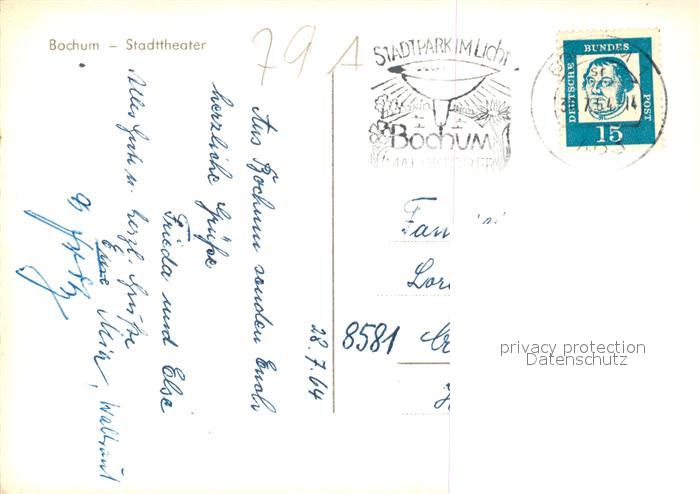 Bochum – Stadttheater
79 A
STADTPARK IM LICHT
BOCHUM
MAI-OKTOBER
DEUTSCHE BUNDES POST
15
28.7.64
Aus Bochum senden Euch
herzliche Grüße
Frieda und Else
Alles Gute u. herzl. Grüße
Eure
Waltraut
8581
privacy protection
Datenschutz